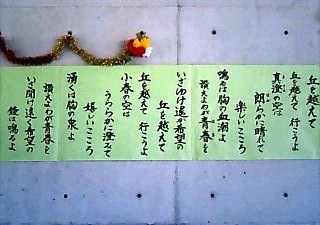 丘を越えて
丘を越えて 行こうよ
真澄の空は
朗らかに晴れて
楽しいこころ
鳴るは胸の血潮よ
讃えよわが青春を
いざゆけ遥か希望の
丘を越えて
丘を越えて 行こうよ
小春の空は
うららかに澄みて
嬉しいこころ
湧くは胸の泉よ
讃えよわが青春を
いざ聞け遠く希望の
鐘は鳴るよ